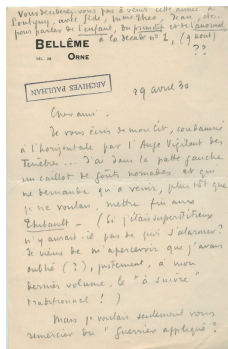 Vous déciderez-vous pas à venir cette année à
Pontigny, avec Gide, Mme Théo, Jean, etc.
pour parler de l'enfant, du primitif et de l'anormal
à la décade no 2, (9 août)
??
BELLÊME
TÉL. 28 ORNE
ARCHIVES PAULHAN
29 avril 30
Cher ami.
Je vous écris de mon lit, condamné
à l'horizontale par l'Ange Vigilant des
Ténèbres... J'ai dans la patte gauche
un caillot de goûts nomades et qui
ne demande qu'à venir, plus tôt que
je ne voulais, mettre fin aux
Thibault. – (Si j'étais superstitieux
n'y aurait-il pas de quoi s'alarmer?
Je viens de m'apercevoir que j'avais
oublié (?), justement, à mon
dernier volume, le "à suivre"
traditionnel!)
Mais je voulais seulement vous
remercier du "Guerrier appliqué".